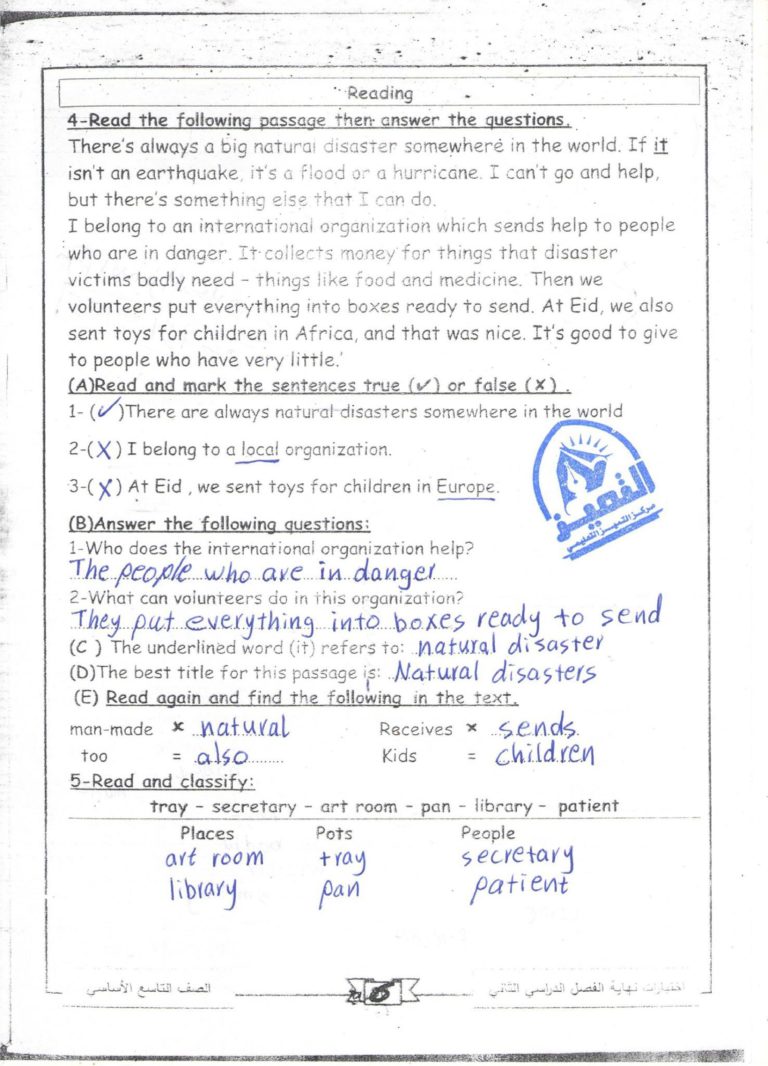 Reading
4-Read the following passage then answer the questions.
There's always a big natural disaster somewhere in the world. If it
isn't an earthquake, it's a flood or a hurricane. I can't go and help,
but there's something else that I can do.
I belong to an international organization which sends help to people
who are in danger. It collects money for things that disaster
victims badly need – things like food and medicine. Then we
volunteers put everything into boxes ready to send. At Eid, we also
sent toys for children in Africa, and that was nice. It's good to give
to people who have very little.'
(A)Read and mark the sentences true (✓) or false (✗) .
1- (✓)There are always natural disasters somewhere in the world
2-(X) I belong to a local organization.
3-(X) At Eid , we sent toys for children in Europe.
التميز
مركز التميز التعليمي
(B)Answer the following questions:
1-Who does the international organization help?
The people who are in danger
2-What can volunteers do in this organization?
They put everything into boxes ready to send
(C ) The underlined word (it) refers to: natural disaster
(D)The best title for this passage is: Natural disasters
(E) Read again and find the following in the text.
man-made × natural Receives × sends
too = also Kids = children
5-Read and classify:
tray – secretary – art room – pan – library – patient
Places Pots People
art room tray secretary
library pan patient
الصف التاسع الأساسي 6 اختبارات نهاية الفصل الدراسي الثاني